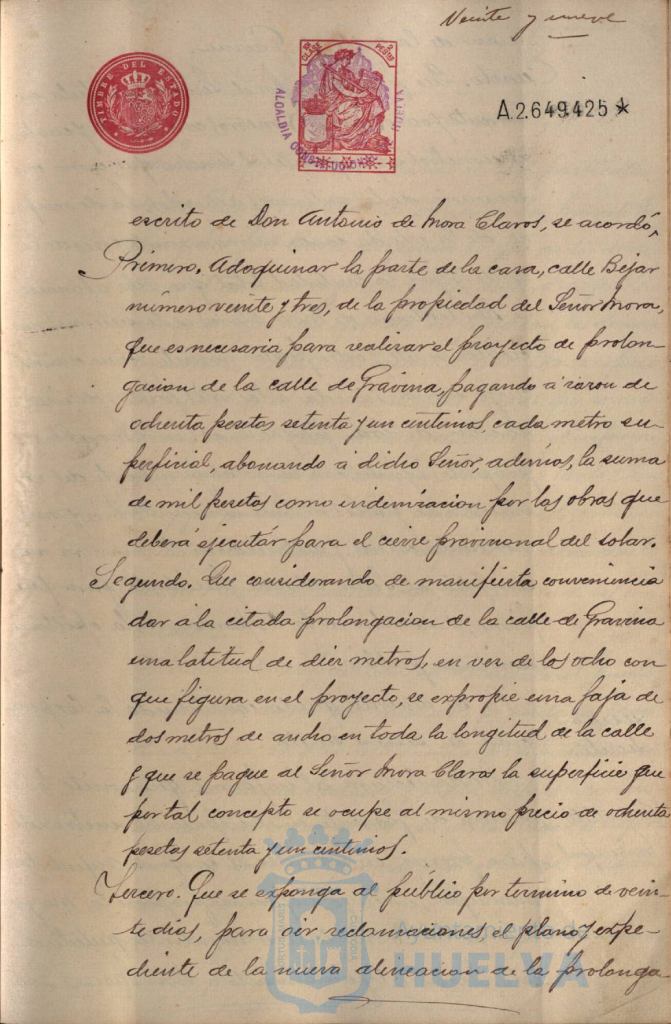 Veinte y nueve
TIMBRE DEL ESTADO
ALCALDIA CONSTITUCIONAL HUELVA
A.2.649.425*
escrito de Don Antonio de Mora Claros, se acordó,
Primero. Adoquinar la parte de la casa, calle Béjar
número veinte y tres, de la propiedad del Señor Mora,
que es necesaria para realizar el proyecto de prolon-
gacion de la calle de Gravina, pagando á razon de
ochenta pesetas setenta y un centimos, cada metro su-
perficial, abonando á dicho Señor, además, la suma
de mil pesetas como indemizacion por las obras que
deberá ejecutar para el cierre provisional del solar.
Segundo. Que considerando de manifiesta conveniencia
dar á la citada prolongacion de la calle de Gravina
una latitud de diez metros, en vez de los ocho con
que figura en el proyecto, se expropie una faja de
dos metros de ancho en toda la longitud de la calle
y que se pague al Señor Mora Claros la superficie que
por tal concepto se ocupe al mismo precio de ochenta
pesetas setenta y un centimos.
Tercero. Que se exponga al público por termino de vein-
te dias, para oir reclamaciones, el plano y expe-
diente de la nueva alineacion de la prolonga-
HUELVA